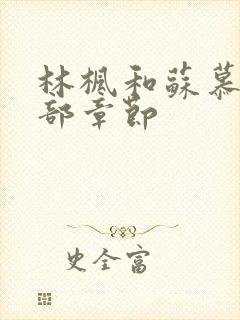 林楓和蘇慕
部章節
史全富